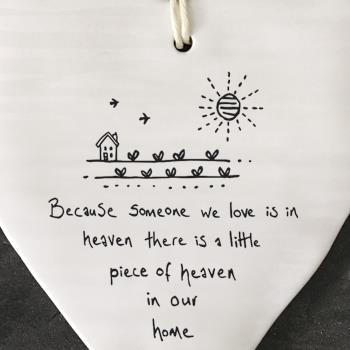 Because someone we love is in
heaven there is a little
piece of heaven
in our
home